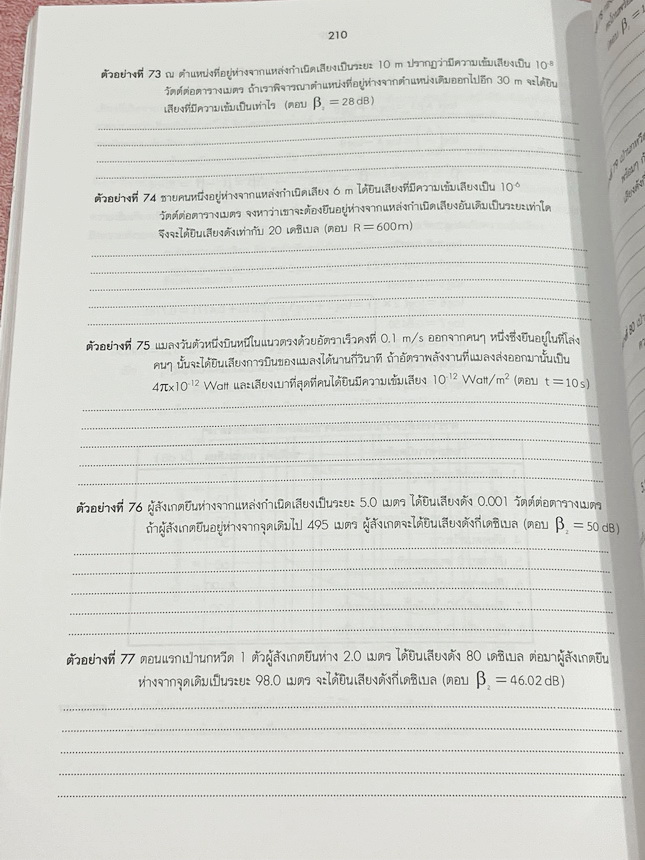 210
ตัวอย่างที่ 73 ณ ตำแหน่งที่อยู่ห่างจากแหล่งกำเนิดเสียงเป็นระยะ 10 m ปรากฏว่ามีความเข้มเสียงเป็น 10⁻⁸
วัตต์ต่อตารางเมตร ถ้าเราพิจารณาตำแหน่งที่อยู่ห่างจากตำแหน่งเดิมออกไปอีก 30 m จะได้ยิน
เสียงที่มีความเข้มเป็นเท่าไร (ตอบ β₂ = 28 dB)
ตัวอย่างที่ 74 ชายคนหนึ่งอยู่ห่างจากแหล่งกำเนิดเสียง 6 m ได้ยินเสียงที่มีความเข้มเสียงเป็น 10⁻⁶
วัตต์ต่อตารางเมตร จงหาว่าเขาจะต้องยืนอยู่ห่างจากแหล่งกำเนิดเสียงอันเดิมเป็นระยะเท่าใด
จึงจะได้ยินเสียงดังเท่ากับ 20 เดซิเบล (ตอบ R = 600m)
ตัวอย่างที่ 75 แมลงวันตัวหนึ่งบินหนีในแนวตรงด้วยอัตราเร็วคงที่ 0.1 m/s ออกจากคนๆ หนึ่งซึ่งยืนอยู่ในที่โล่ง
คนๆ นั้นจะได้ยินเสียงการบินของแมลงได้นานกี่วินาที ถ้าอัตราพลังงานที่แมลงส่งออกมานั้นเป็น
4π×10⁻¹² Watt และเสียงเบาที่สุดที่คนได้ยินมีความเข้มเสียง 10⁻¹² Watt/m² (ตอบ t = 10 s)
ตัวอย่างที่ 76 ผู้สังเกตยืนห่างจากแหล่งกำเนิดเสียงเป็นระยะ 5.0 เมตร ได้ยินเสียงดัง 0.001 วัตต์ต่อตารางเมตร
ถ้าผู้สังเกตยืนอยู่ห่างจากจุดเดิมไป 495 เมตร ผู้สังเกตจะได้ยินเสียงดังกี่เดซิเบล (ตอบ β₂ = 50 dB)
ตัวอย่างที่ 77 ตอนแรกเป่านกหวีด 1 ตัวผู้สังเกตยืนห่าง 2.0 เมตร ได้ยินเสียงดัง 80 เดซิเบล ต่อมาผู้สังเกตยืน
ห่างจากจุดเดิมเป็นระยะ 98.0 เมตร จะได้ยินเสียงดังกี่เดซิเบล (ตอบ β₂ = 46.02 dB)